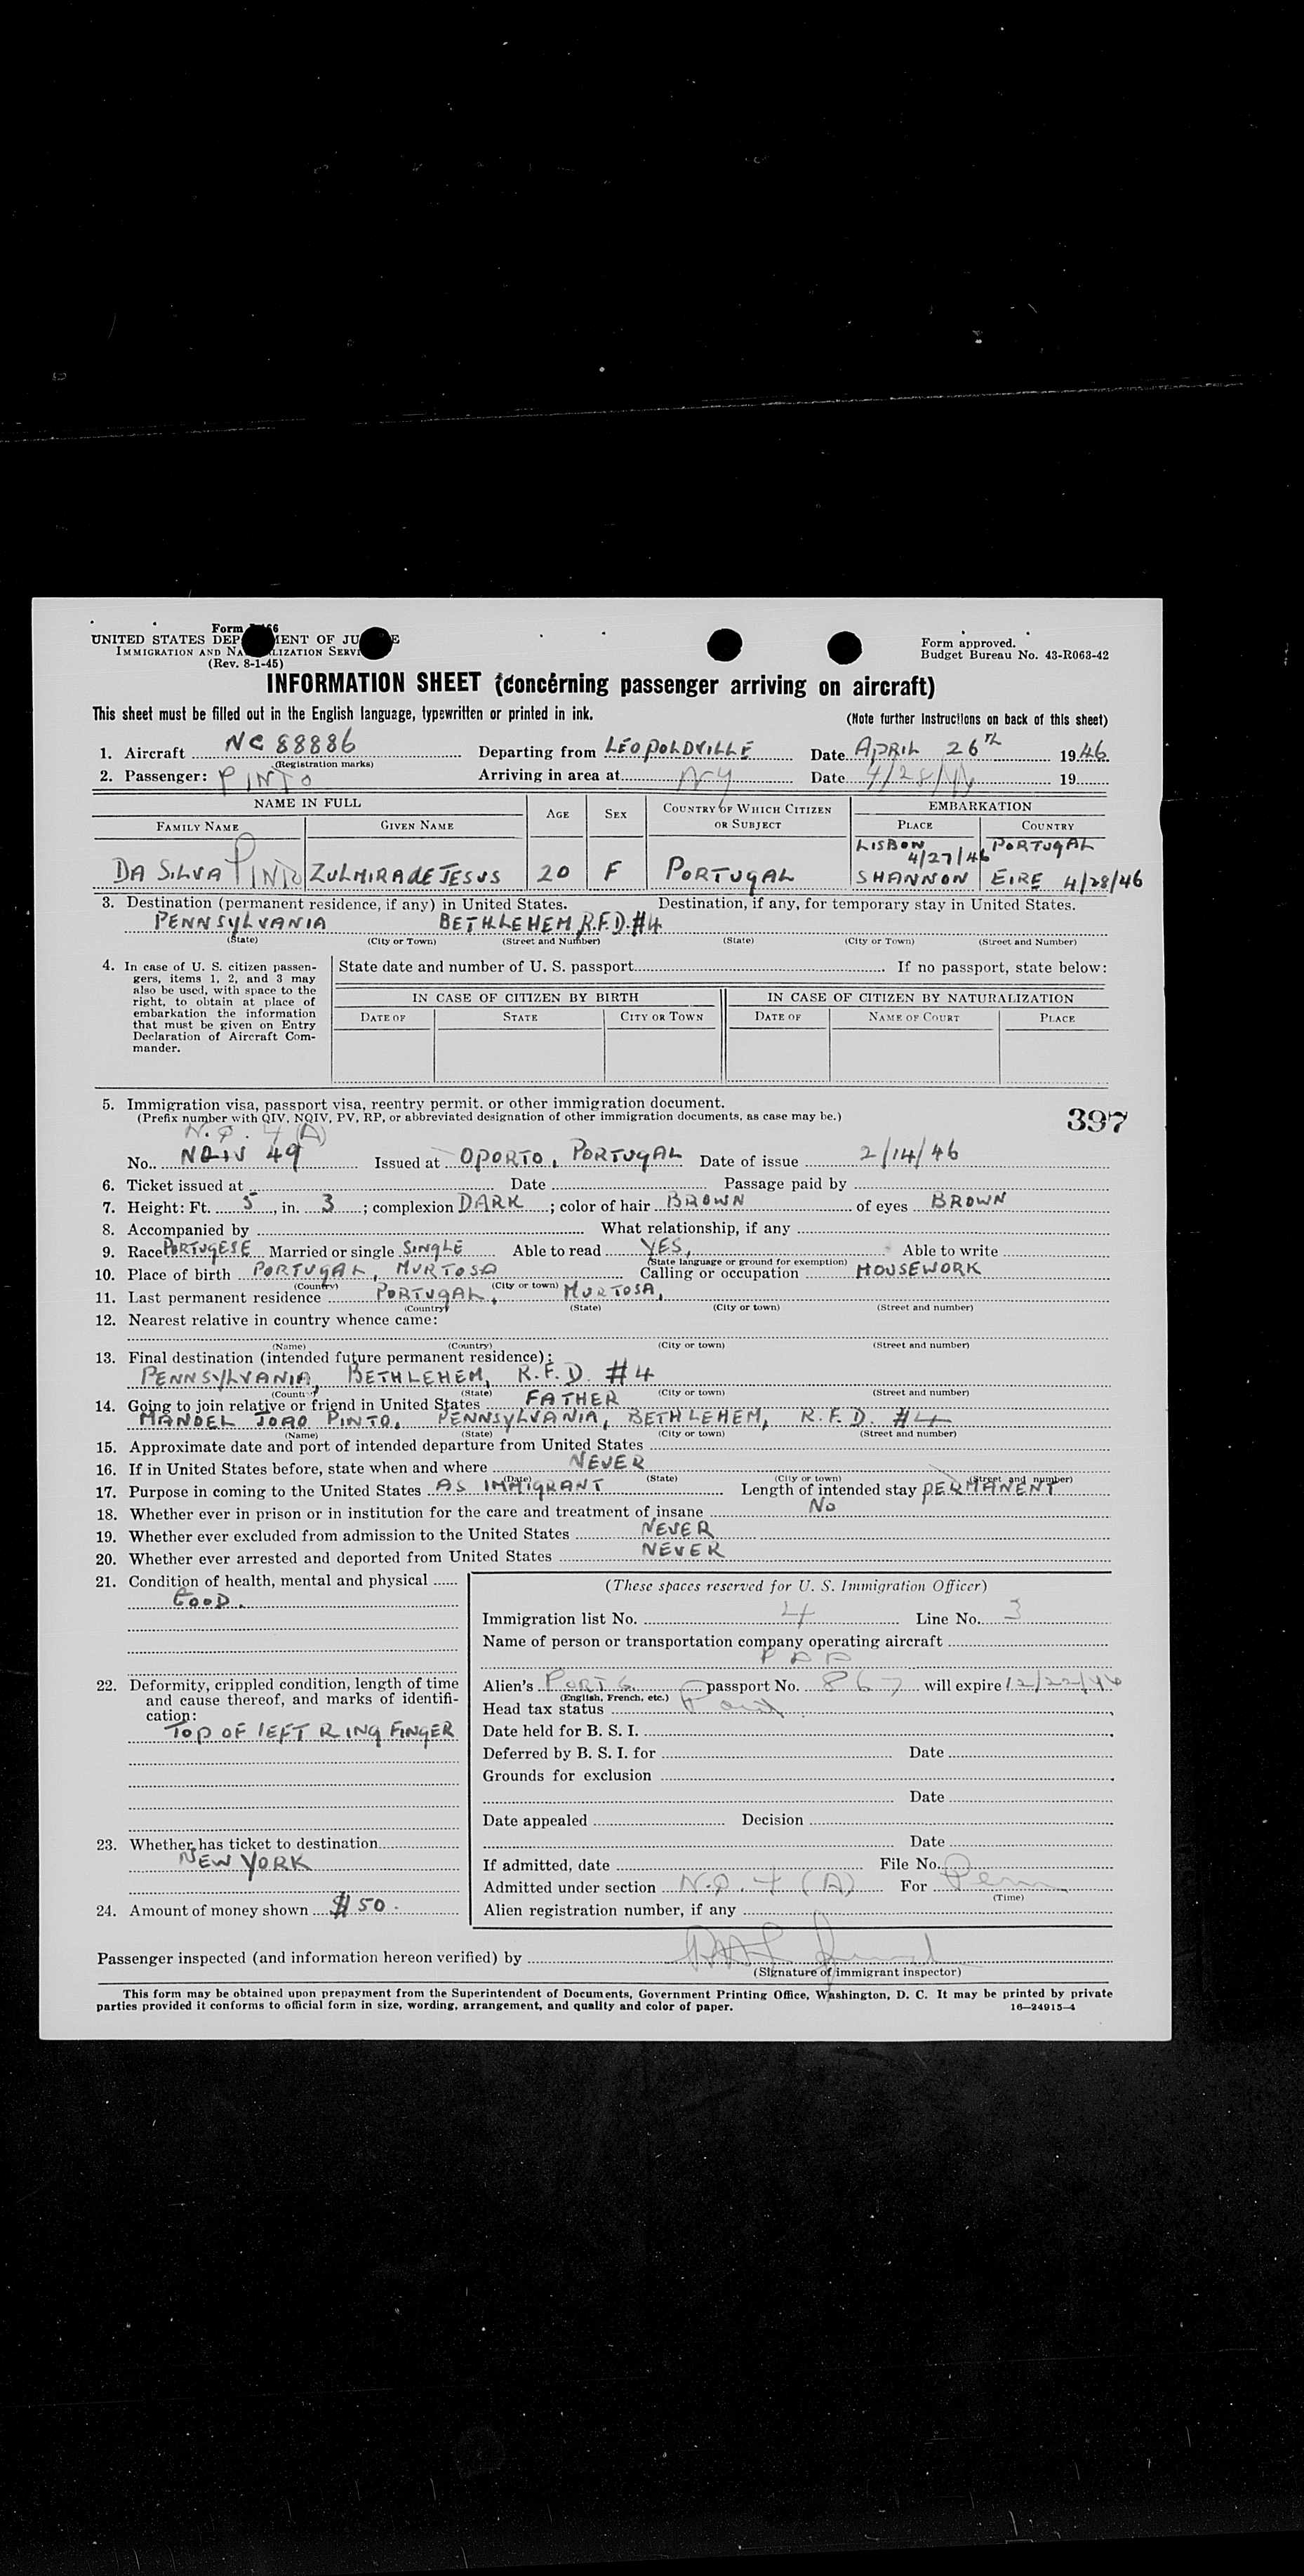 Form I-466
UNITED STATES DEPARTMENT OF JUSTICE
IMMIGRATION AND NATURALIZATION SERVICE
(Rev. 8-1-45)
Form approved.
Budget Bureau No. 43-R063-42
INFORMATION SHEET (concerning passenger arriving on aircraft)
This sheet must be filled out in the English language, typewritten or printed in ink.
(Note further instructions on back of this sheet)
1. Aircraft NC 88886 Departing from LÉOPOLDVILLE Date APRIL 26TH 1946
(Registration marks)
2. Passenger: PINTO Arriving in area at NY Date 4/28/46 19
NAME IN FULL AGE SEX COUNTRY OF WHICH CITIZEN OR SUBJECT EMBARKATION
FAMILY NAME GIVEN NAME PLACE COUNTRY
LISBON 4/27/46 PORTUGAL
DA SILVA PINTO ZULMIRA de JESUS 20 F PORTUGAL SHANNON EIRE 4/28/46
3. Destination (permanent residence, if any) in United States. Destination, if any, for temporary stay in United States.
PENNSYLVANIA BETHLEHEM R.F.D. #4
(State) (City or Town) (Street and Number) (State) (City or Town) (Street and Number)
4. In case of U. S. citizen passengers, items 1, 2, and 3 may also be used, with space to the right, to obtain at place of embarkation the information that must be given on Entry Declaration of Aircraft Commander.
State date and number of U. S. passport If no passport, state below:
IN CASE OF CITIZEN BY BIRTH IN CASE OF CITIZEN BY NATURALIZATION
DATE OF STATE CITY OR TOWN DATE OF NAME OF COURT PLACE
5. Immigration visa, passport visa, reentry permit, or other immigration document.
(Prefix number with QIV, NQIV, PV, RP, or abbreviated designation of other immigration documents, as case may be.)
397
N.Q. 4 (A)
No. NQIV 49 Issued at OPORTO, PORTUGAL Date of issue 2/14/46
6. Ticket issued at Date Passage paid by
7. Height: Ft. 5, in. 3; complexion DARK; color of hair BROWN of eyes BROWN
8. Accompanied by What relationship, if any
9. Race PORTUGESE Married or single SINGLE Able to read YES, Able to write
(State language or ground for exemption)
10. Place of birth PORTUGAL, MURTOSA Calling or occupation HOUSEWORK
(Country) (City or town)
11. Last permanent residence PORTUGAL, MURTOSA,
(Country) (State) (City or town) (Street and number)
12. Nearest relative in country whence came:
(Name) (Country) (City or town) (Street and number)
13. Final destination (intended future permanent residence):
PENNSYLVANIA, BETHLEHEM, R.F.D. #4
(Country) (State) (City or town) (Street and number)
14. Going to join relative or friend in United States FATHER
MANOEL JOAO PINTO, PENNSYLVANIA, BETHLEHEM, R.F.D. #4
(Name) (State) (City or town) (Street and number)
15. Approximate date and port of intended departure from United States
16. If in United States before, state when and where NEVER
(Date) (State) (City or town) (Street and number)
17. Purpose in coming to the United States AS IMMIGRANT Length of intended stay PERMANENT
18. Whether ever in prison or in institution for the care and treatment of insane No
19. Whether ever excluded from admission to the United States NEVER
20. Whether ever arrested and deported from United States NEVER
21. Condition of health, mental and physical
GOOD.
22. Deformity, crippled condition, length of time and cause thereof, and marks of identification:
TOP OF lEFT RING FINGER
23. Whether has ticket to destination
NEW YORK
24. Amount of money shown $50.
(These spaces reserved for U. S. Immigration Officer)
Immigration list No. 4 Line No. 3
Name of person or transportation company operating aircraft
PAA
Alien's PORTG. passport No. 867 will expire 12/22/46
(English, French, etc.)
Head tax status Paid
Date held for B. S. I.
Deferred by B. S. I. for Date
Grounds for exclusion
Date
Date appealed Decision
Date
If admitted, date File No.
Admitted under section N.Q. 4 (A) For Perm
(Time)
Alien registration number, if any
Passenger inspected (and information hereon verified) by
(Signature of immigrant inspector)
This form may be obtained upon prepayment from the Superintendent of Documents, Government Printing Office, Washington, D. C. It may be printed by private
parties provided it conforms to official form in size, wording, arrangement, and quality and color of paper.
16—24915-4